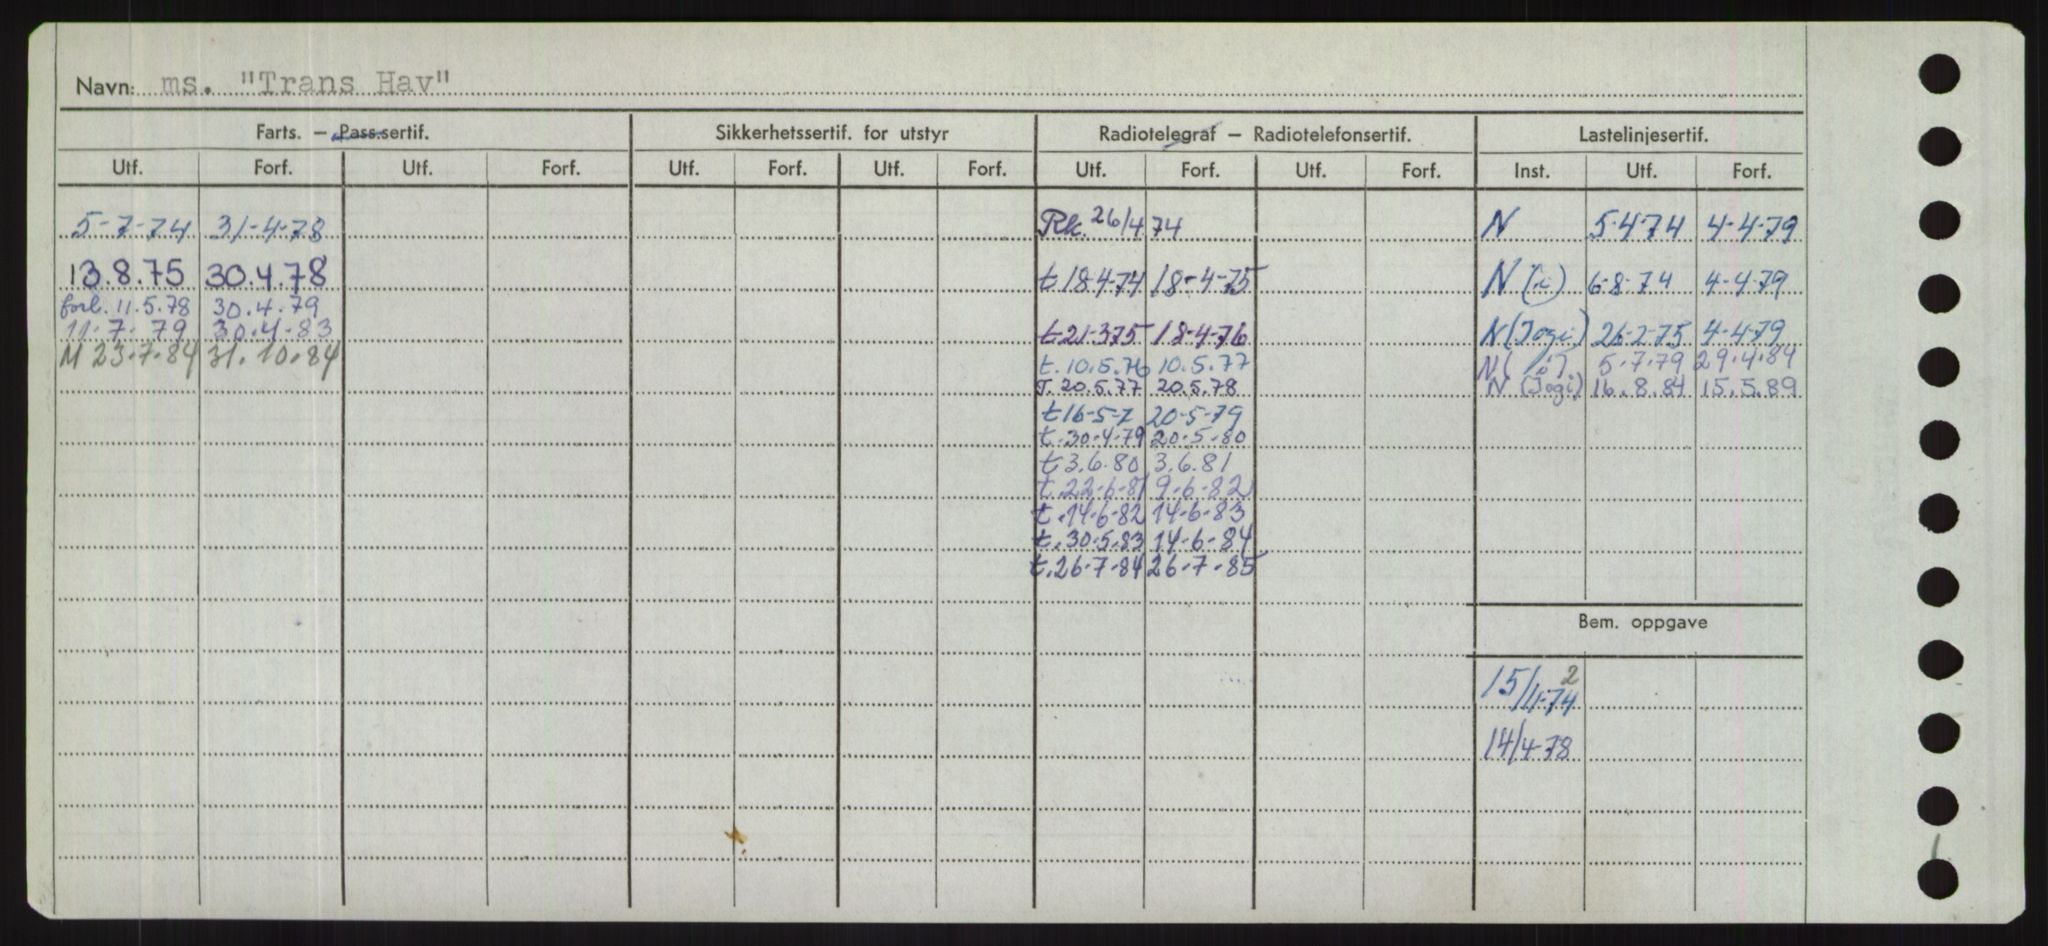 Navn: ms. "Trans Hav"
Farts. – Pass.sertif. Sikkerhetssertif. for utstyr Radiotelegraf – Radiotelefonsertif. Lastelinjesertif.
Utf. Forf. Utf. Forf. Utf. Forf. Utf. Forf. Utf. Forf. Utf. Forf. Inst. Utf. Forf.
5-7-74 31-4-78 Rk. 26/4 74 N 5-4-74 4-4-79
13.8.75 30.4.78 t 18-4-74 18-4-75 N 6-8-74 4-4-79
forl. 11.5.78 30.4.79
11-7-79 30.4.83 t 21-3-75 18-4-76 N (Jogi) 26-2-75 4-4-79
M 23-7-84 31.10.84 t. 10.5.76 10.5.77 N 5.7.79 29.4.84
T. 20.5.77 20.5.78 N (Jogi) 16.8.84 15.5.89
t 16-5-7 20-5-79
t. 30.4.79 20.5.80
t 3.6.80 3.6.81
t. 22-6-81 9-6-82
t. 14-6-82 14-6-83
t. 30.5.83 14-6-84
t. 26-7-84 26-7-85
Bem. oppgave
15/4-74 2
14/4-78